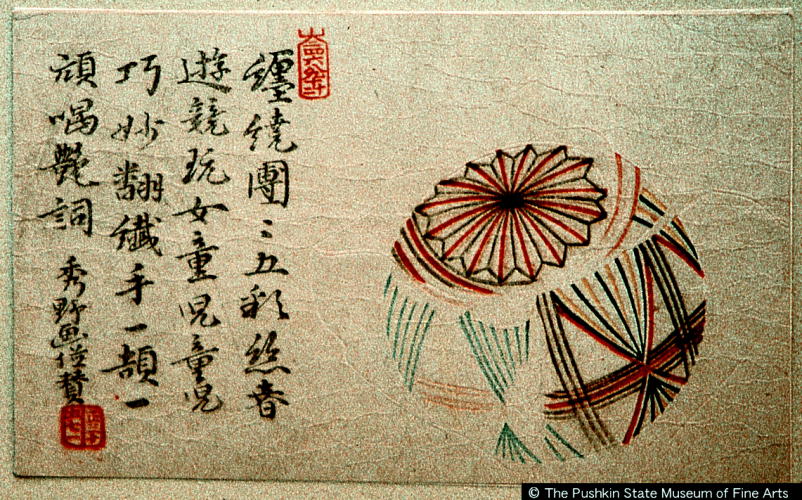 纏繞團〻五彩絲春
遊競玩女童児童児
巧妙翻纖手一頡一
頏唱艶詞
秀野画併賛
© The Pushkin State Museum of Fine Arts